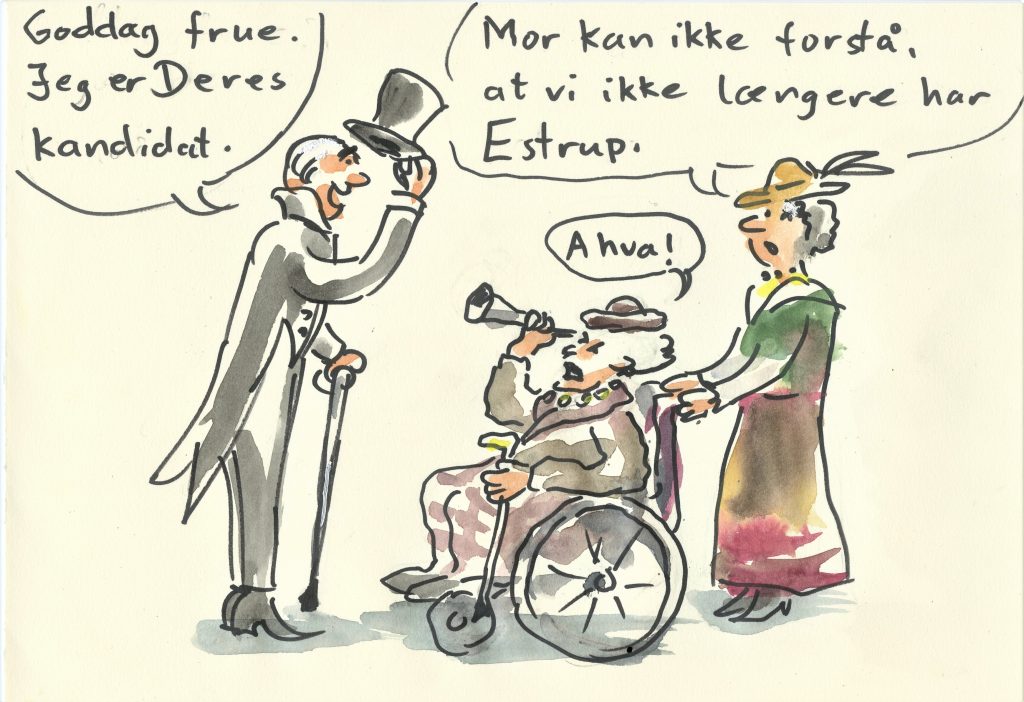 Goddag frue.
Jeg er Deres
kandidat.
Mor kan ikke forstå,
at vi ikke længere har
Estrup.
A hva!